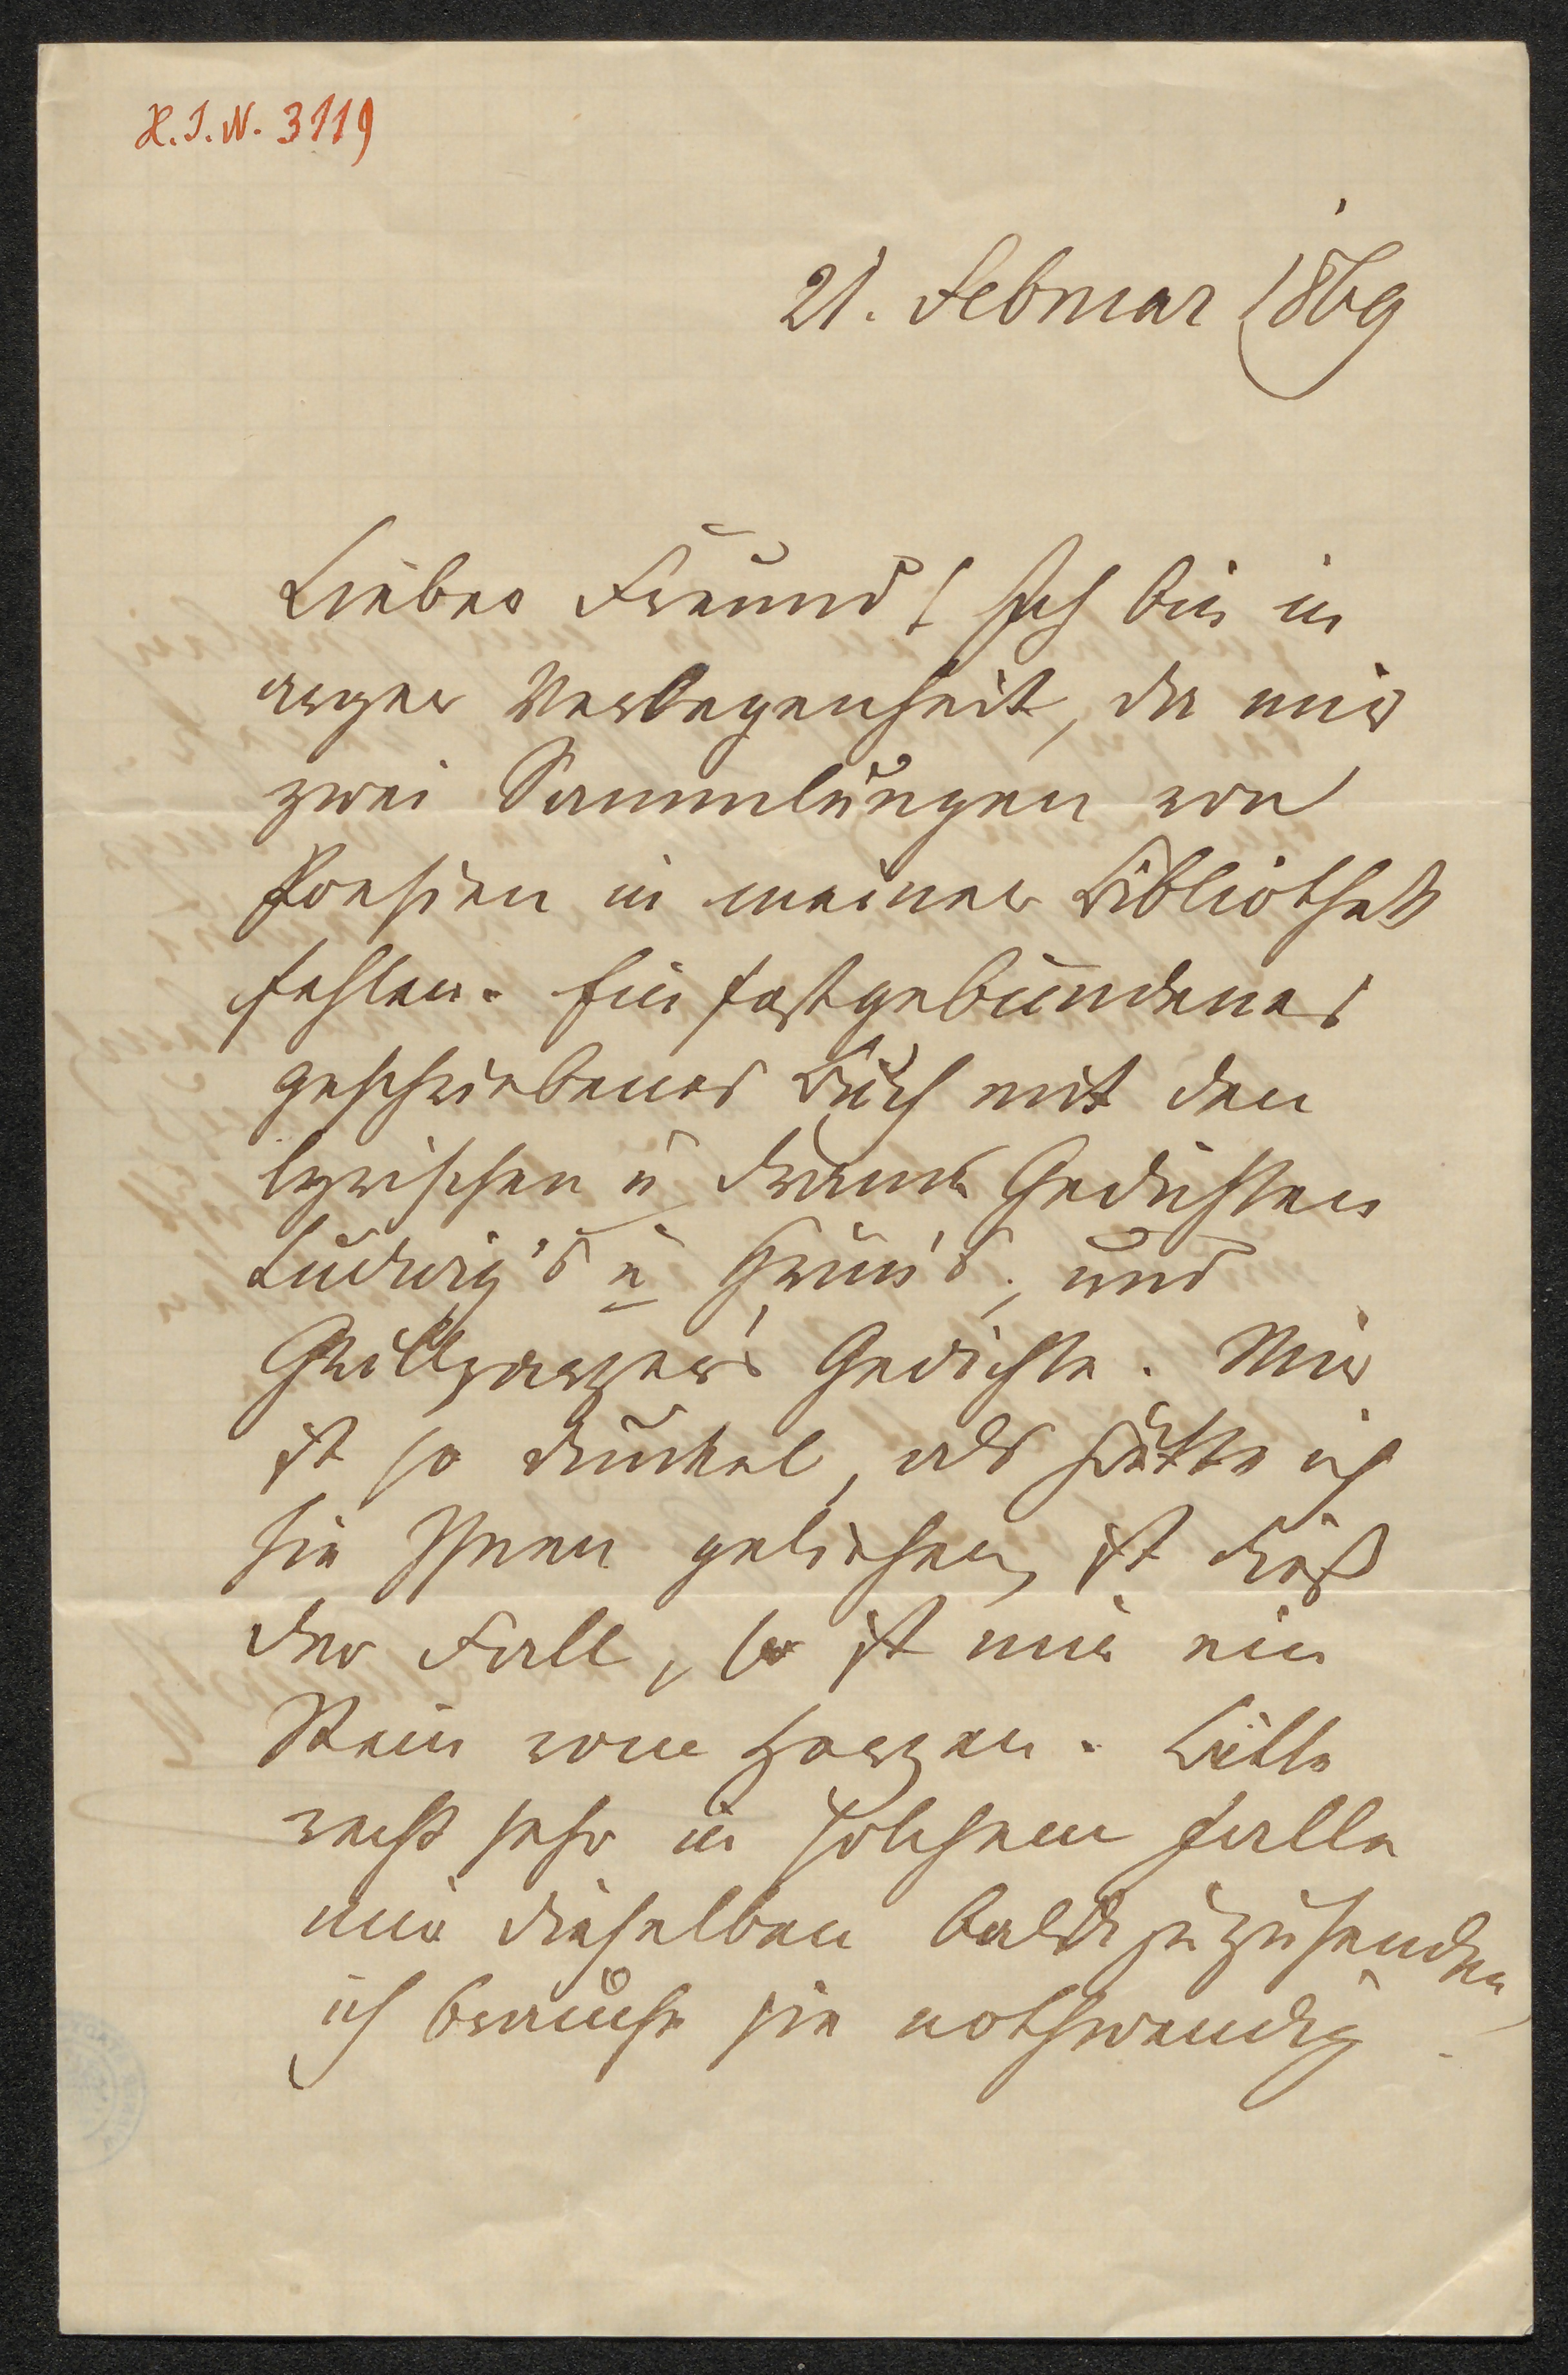 H.I.N. 3119
21. Februar 1869
Lieber Freund! Ich bin in
arger Verlegenheit, da mir
zwei Sammlungen von
Poesien in meiner Bibliothek
fehlen. Ein festgebundenes
geschriebenes Buch mit den
lyrischen u dram. Gedichten
Ludwig's u Grün's, und
Grillparzer's Gedichte. Mir
ist so dunkel, als hätte ich
sie Ihnen geliehen, ist dieß
der Fall, so ist mir ein
Stein vom Herzen. Bitte
recht sehr in solchem Falle
mir dieselben bald zuzusenden,
ich brauche sie nothwendig.